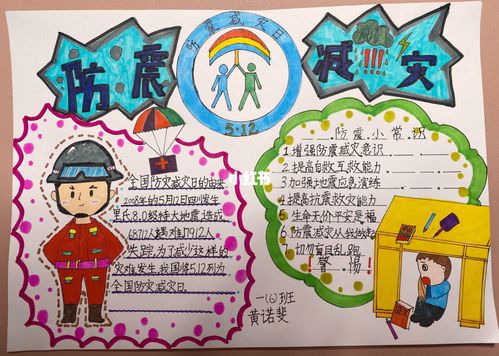 防震
防震减灾日
5.12
减灾
小红书
全国防灾减灾日的由来
2008年的5月12日四川发生
里氏8.0级特大地震,造成
68712人遇难,17912人
失踪,为了减少这样的
灾难发生,我国将5.12列为
全国防灾减灾日。
防震小常识
1.增强防震减灾意识
2.提高自救互救能力
3.加强地震应急演练
4.提高抗震救灾能力
5.生命无价平安是福
6.防震减灾人人
切勿盲目乱跑
警惕!
一(6)班
黄诺斐